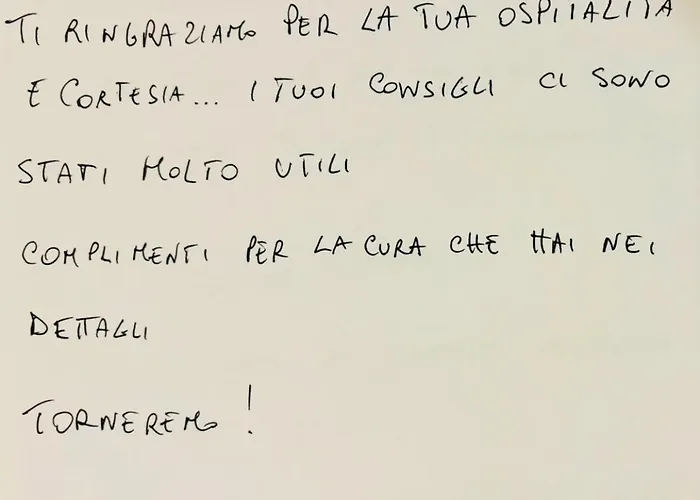 TI RINGRAZIAMO PER LA TUA OSPITALITÀ
E CORTESIA... I TUOI CONSIGLI CI SONO
STATI MOLTO UTILI
COMPLIMENTI PER LA CURA CHE HAI NEI
DETTAGLI
TORNEREMO!